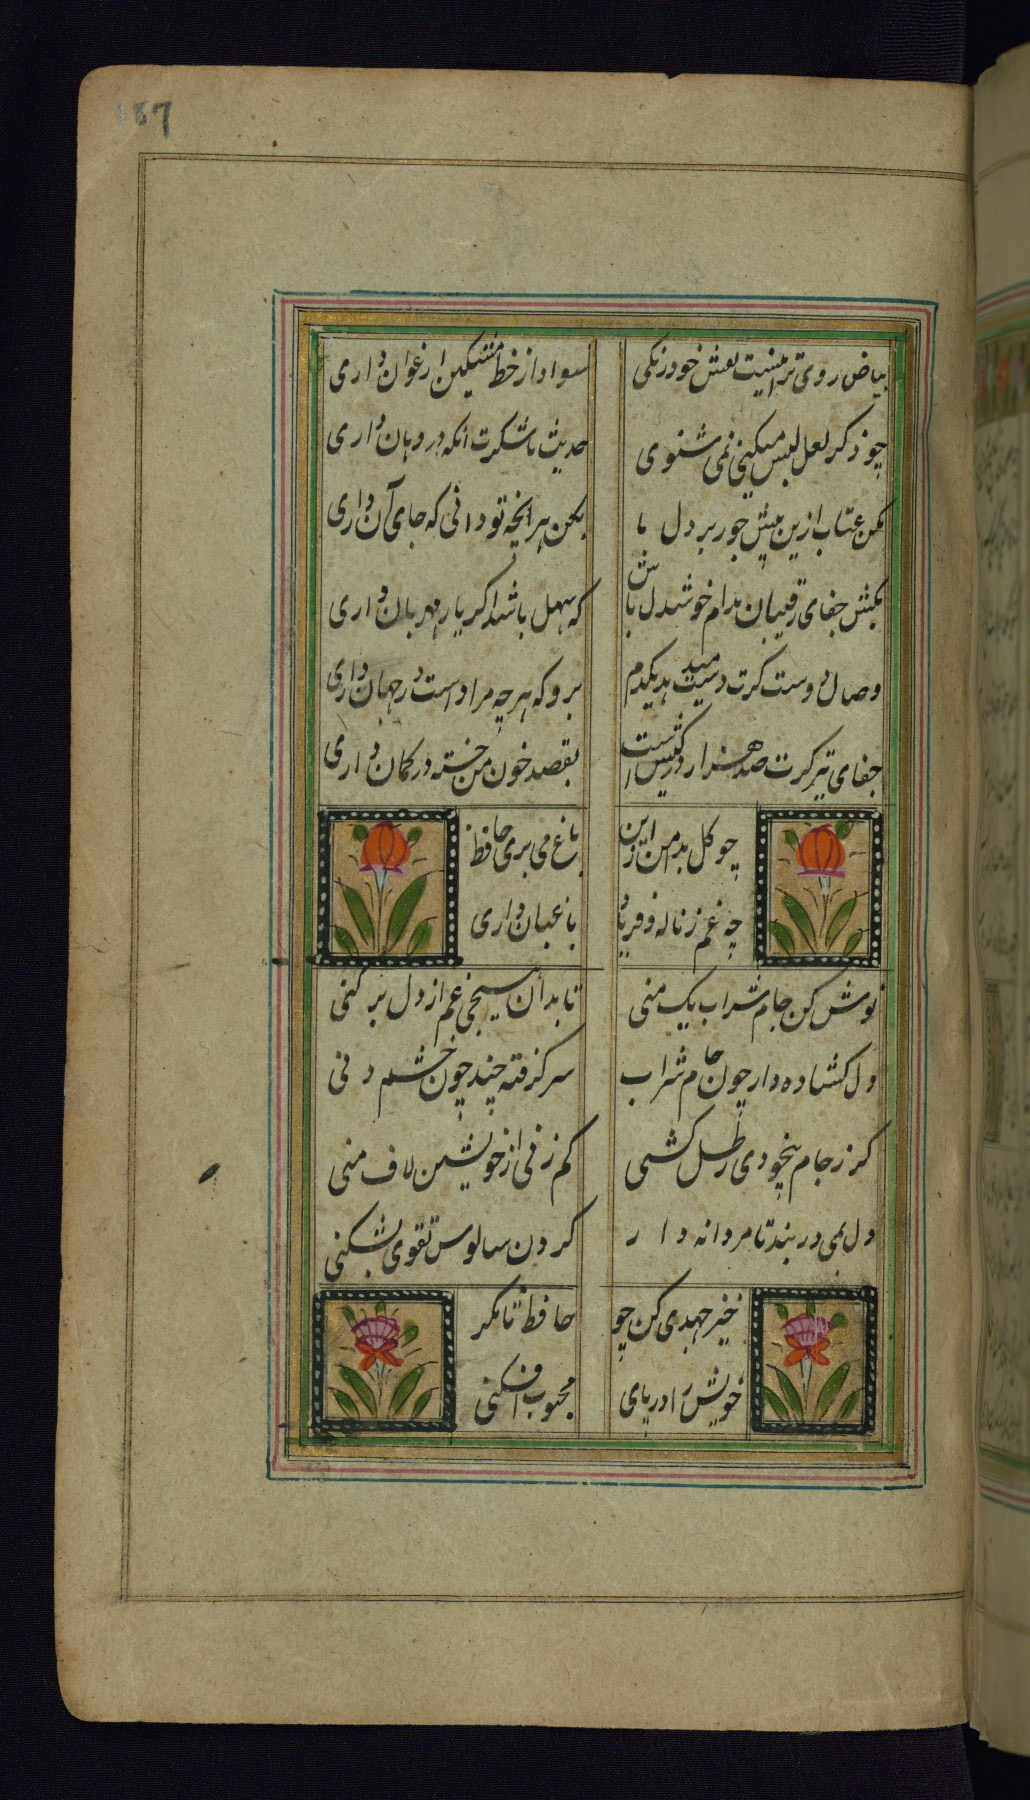 187
بیاض روی ترا نیست نقش خود زنکی سواد از خط مشکین ارغوان داری
چو ذکر لعل لبش میکنی نمی شنوی حدیث با شکرت آنکه در دهان داری
مکن عتاب ازین بیش جور بر دل ما بکن هر آنچه تو دانی که جای آن داری
بکش جفای رقیبان مدام خوشدل باش که سهل باشد اکر یار مهربان داری
وصال دوست کرت دست میدهد یکدم برو که هر چه مراد است در جهان داری
جفای تیر کرت صد هزار در کیش است بقصد خون من خسته در کمان داری
چو کل بدامن ازین باغ می بری حافظ
چه غم ز ناله و فریاد باغبان داری
نوش کن جام شراب یک منی تا بدان بیخ غم از دل بر کنی
دل کشاده دار چون جام شراب سر کرفته چند چون خم دنی
کر ز جام بیخودی رطل کشی کم زنی از خویشتن لاف منی
دل بمی دربند تا مردانه وار کردن سالوس تقوی بشکنی
خیز جهدی کن چو حافظ تا مکر
خویش را در پای محبوب افکنی